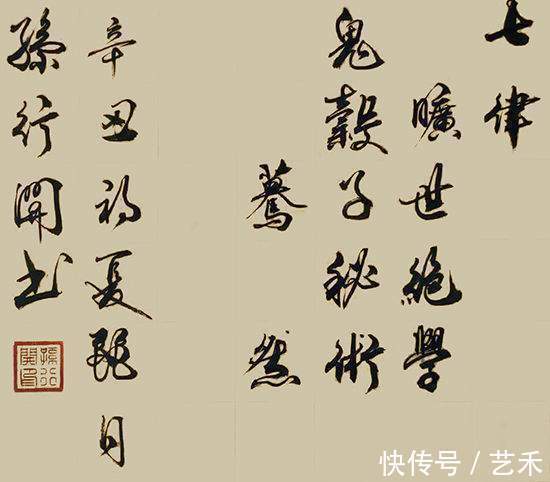 七律
曠世絶學
鬼穀子秘術
驀然
辛丑初夏日
孫行開書
孫行開印
快传号 / 艺禾